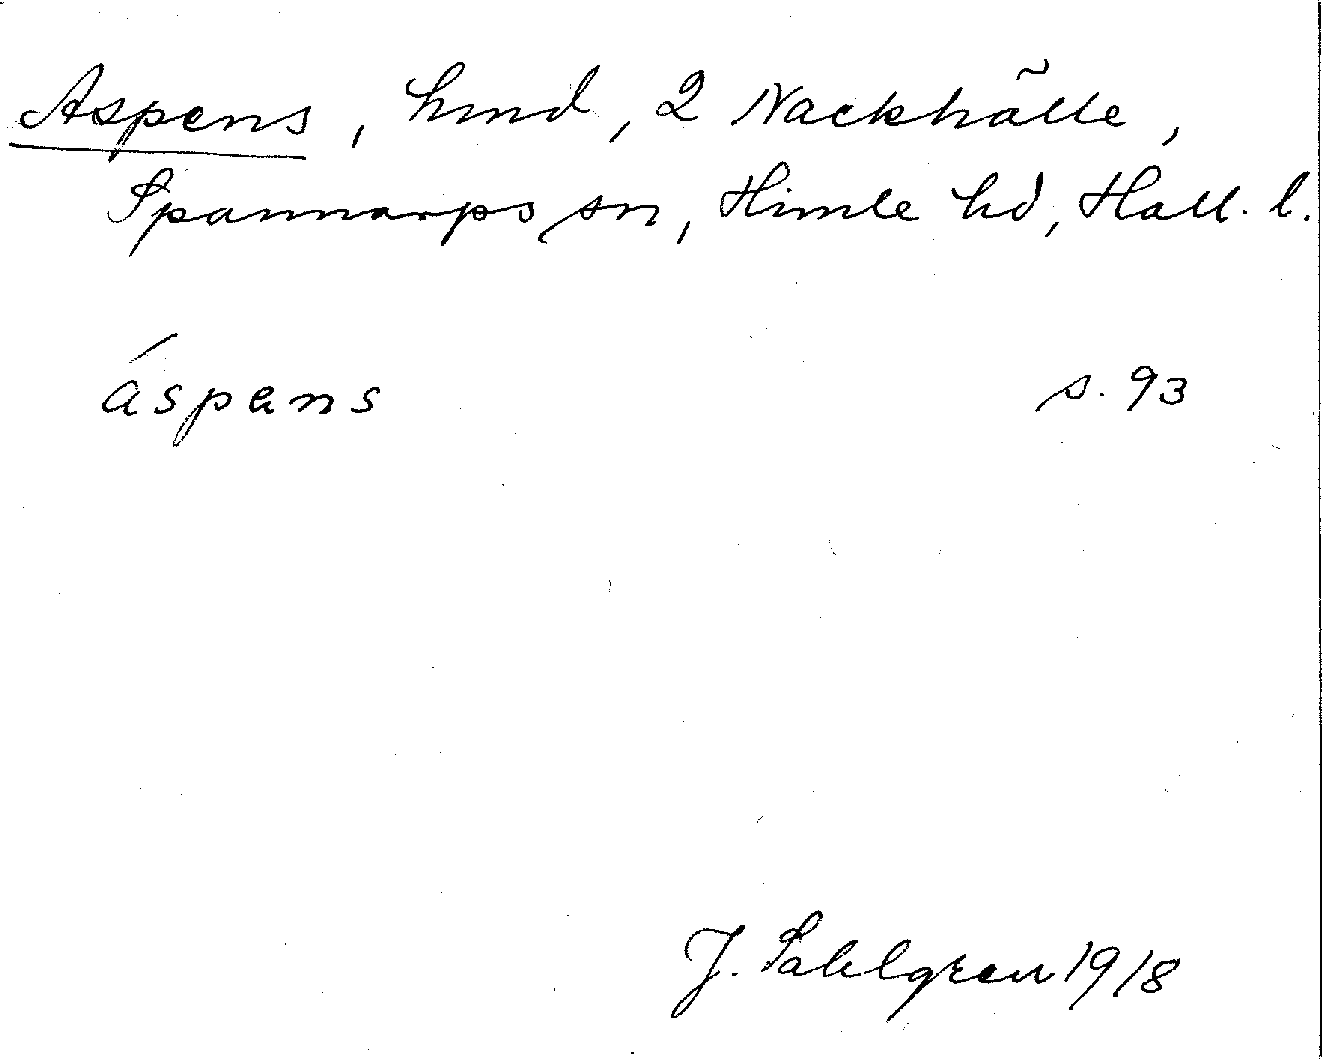 Aspens, hmd, 2 Nackhälle,
Spannarps sn, Himle hd, Hall. l.
áspans s. 93
J. Sahlgren 1918